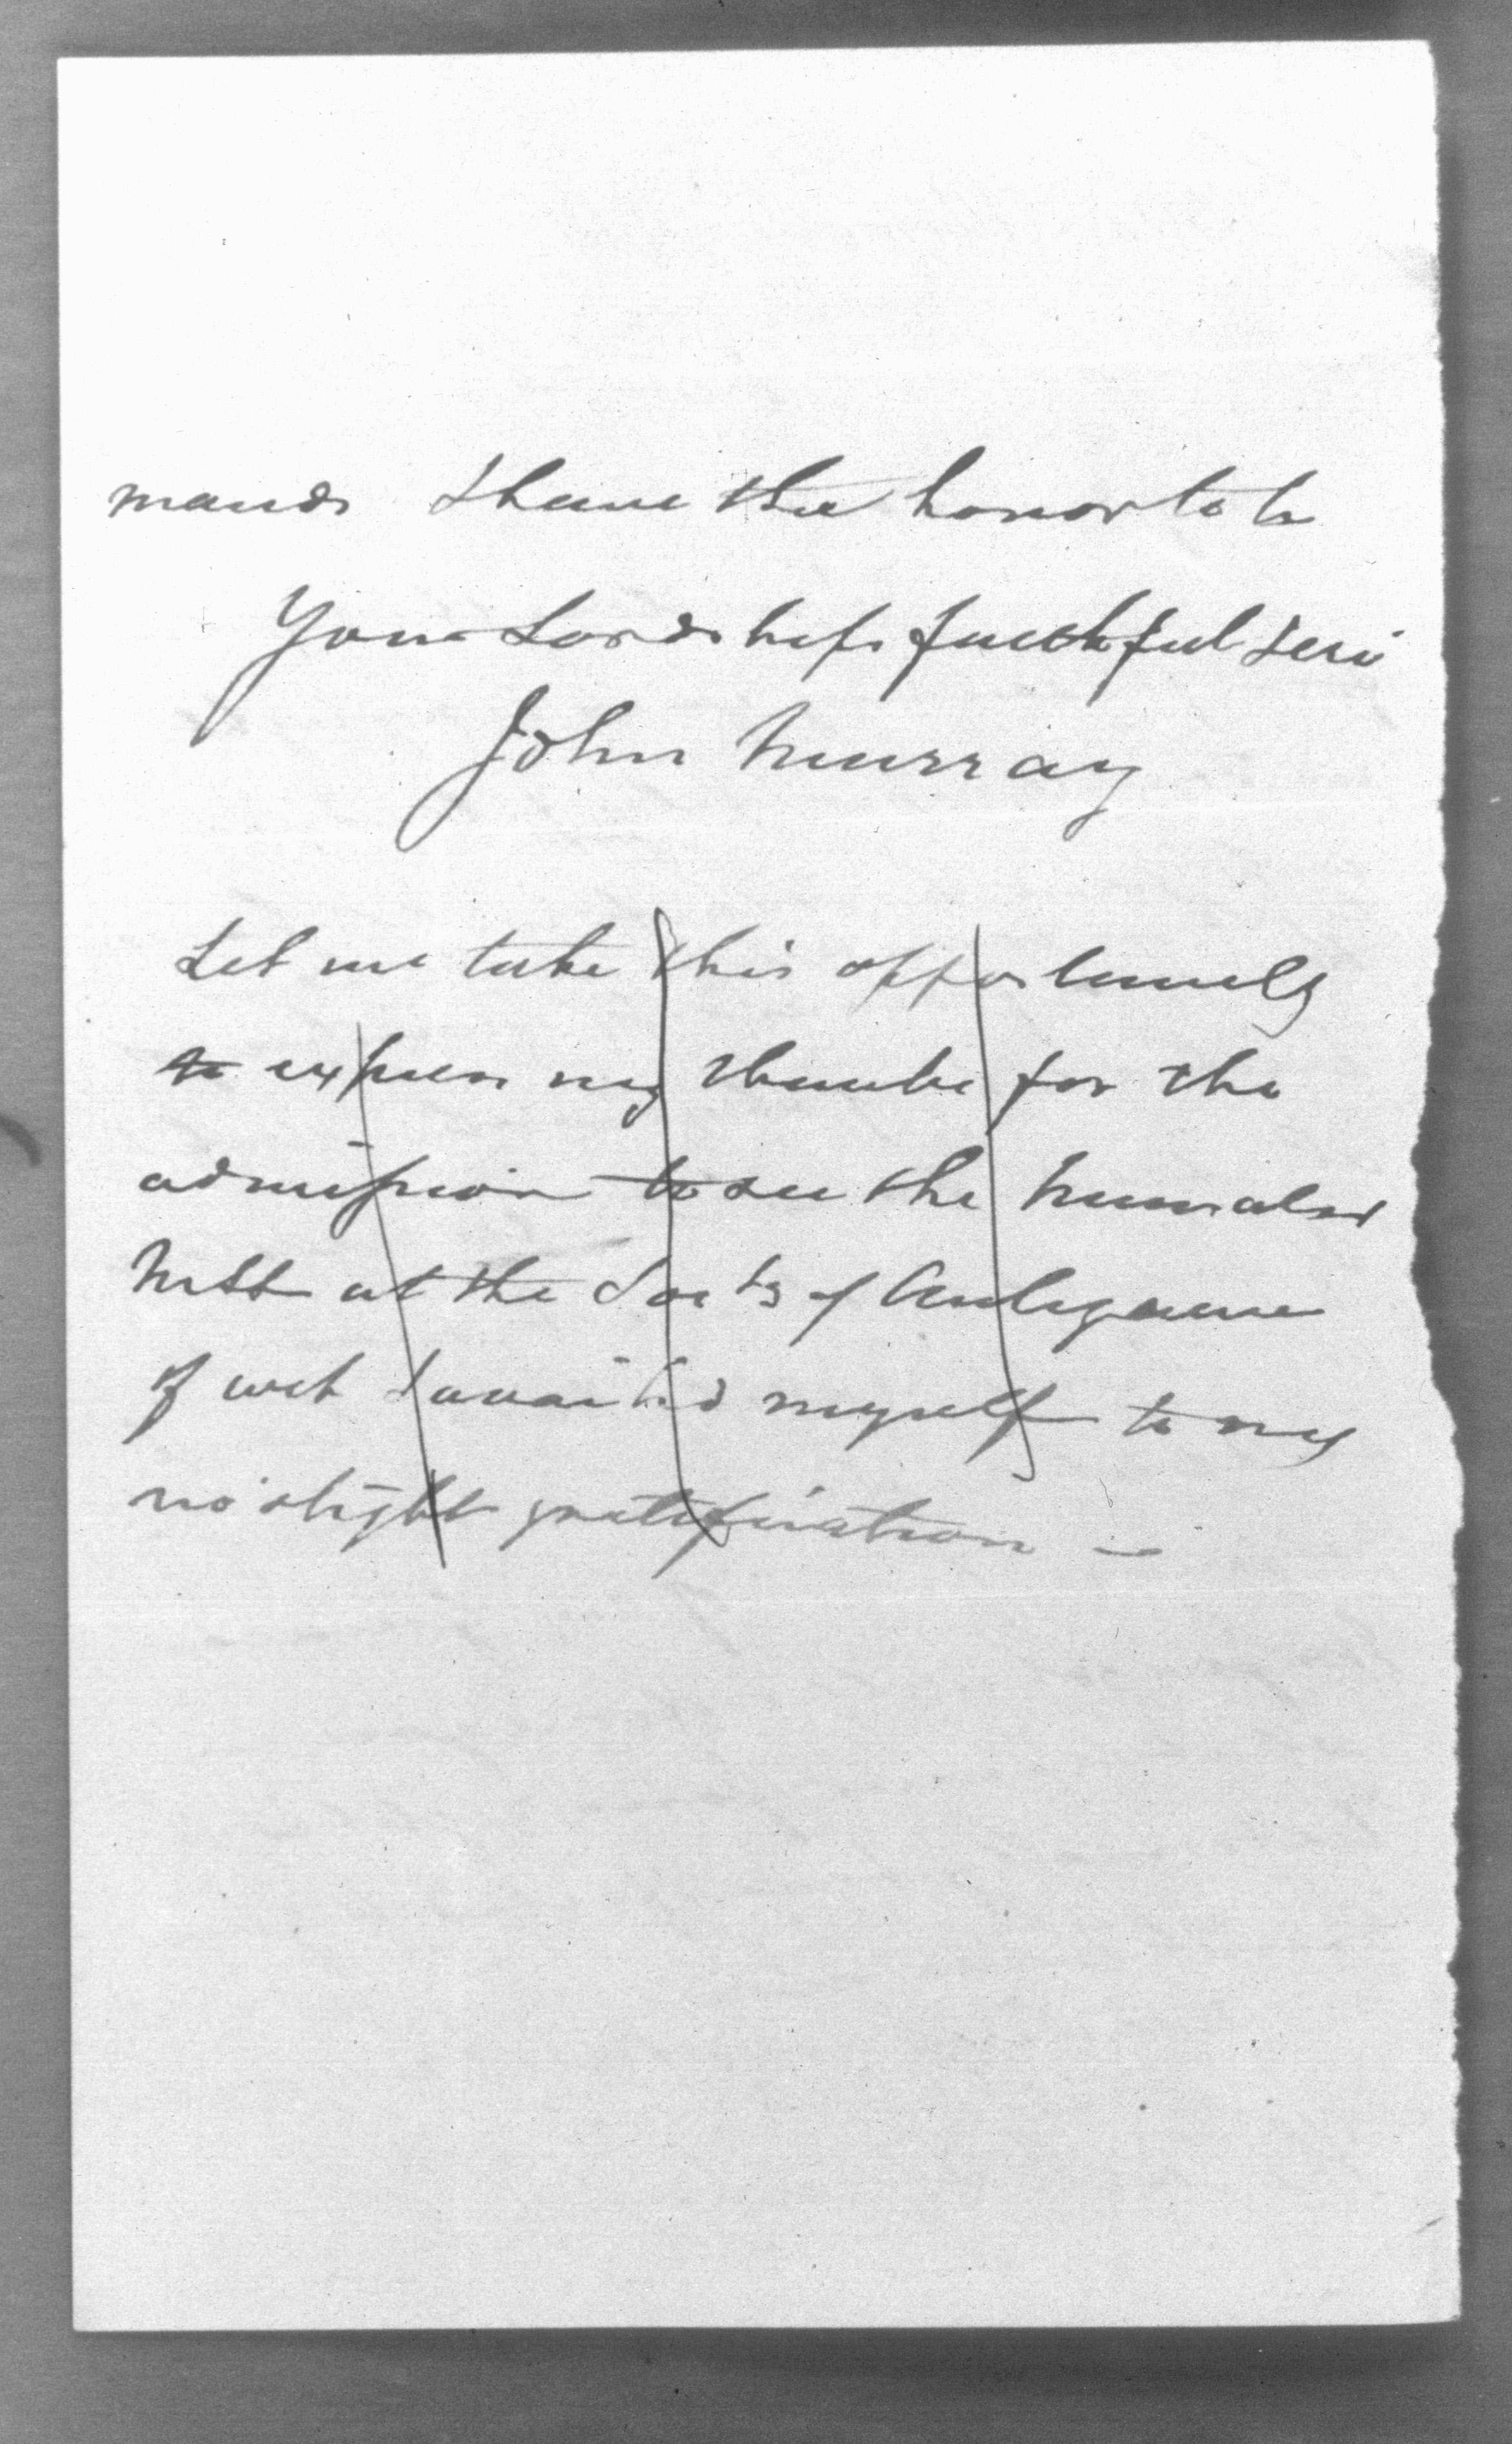 mands I have the honor to be
Your Lordships faithful Serv
John Murray
Let me take this opportunity
to express my thanks for the
admission to see the
MSS at the Soc ty of Antiquaries
of wch I availed myself to my
no slight gratification —